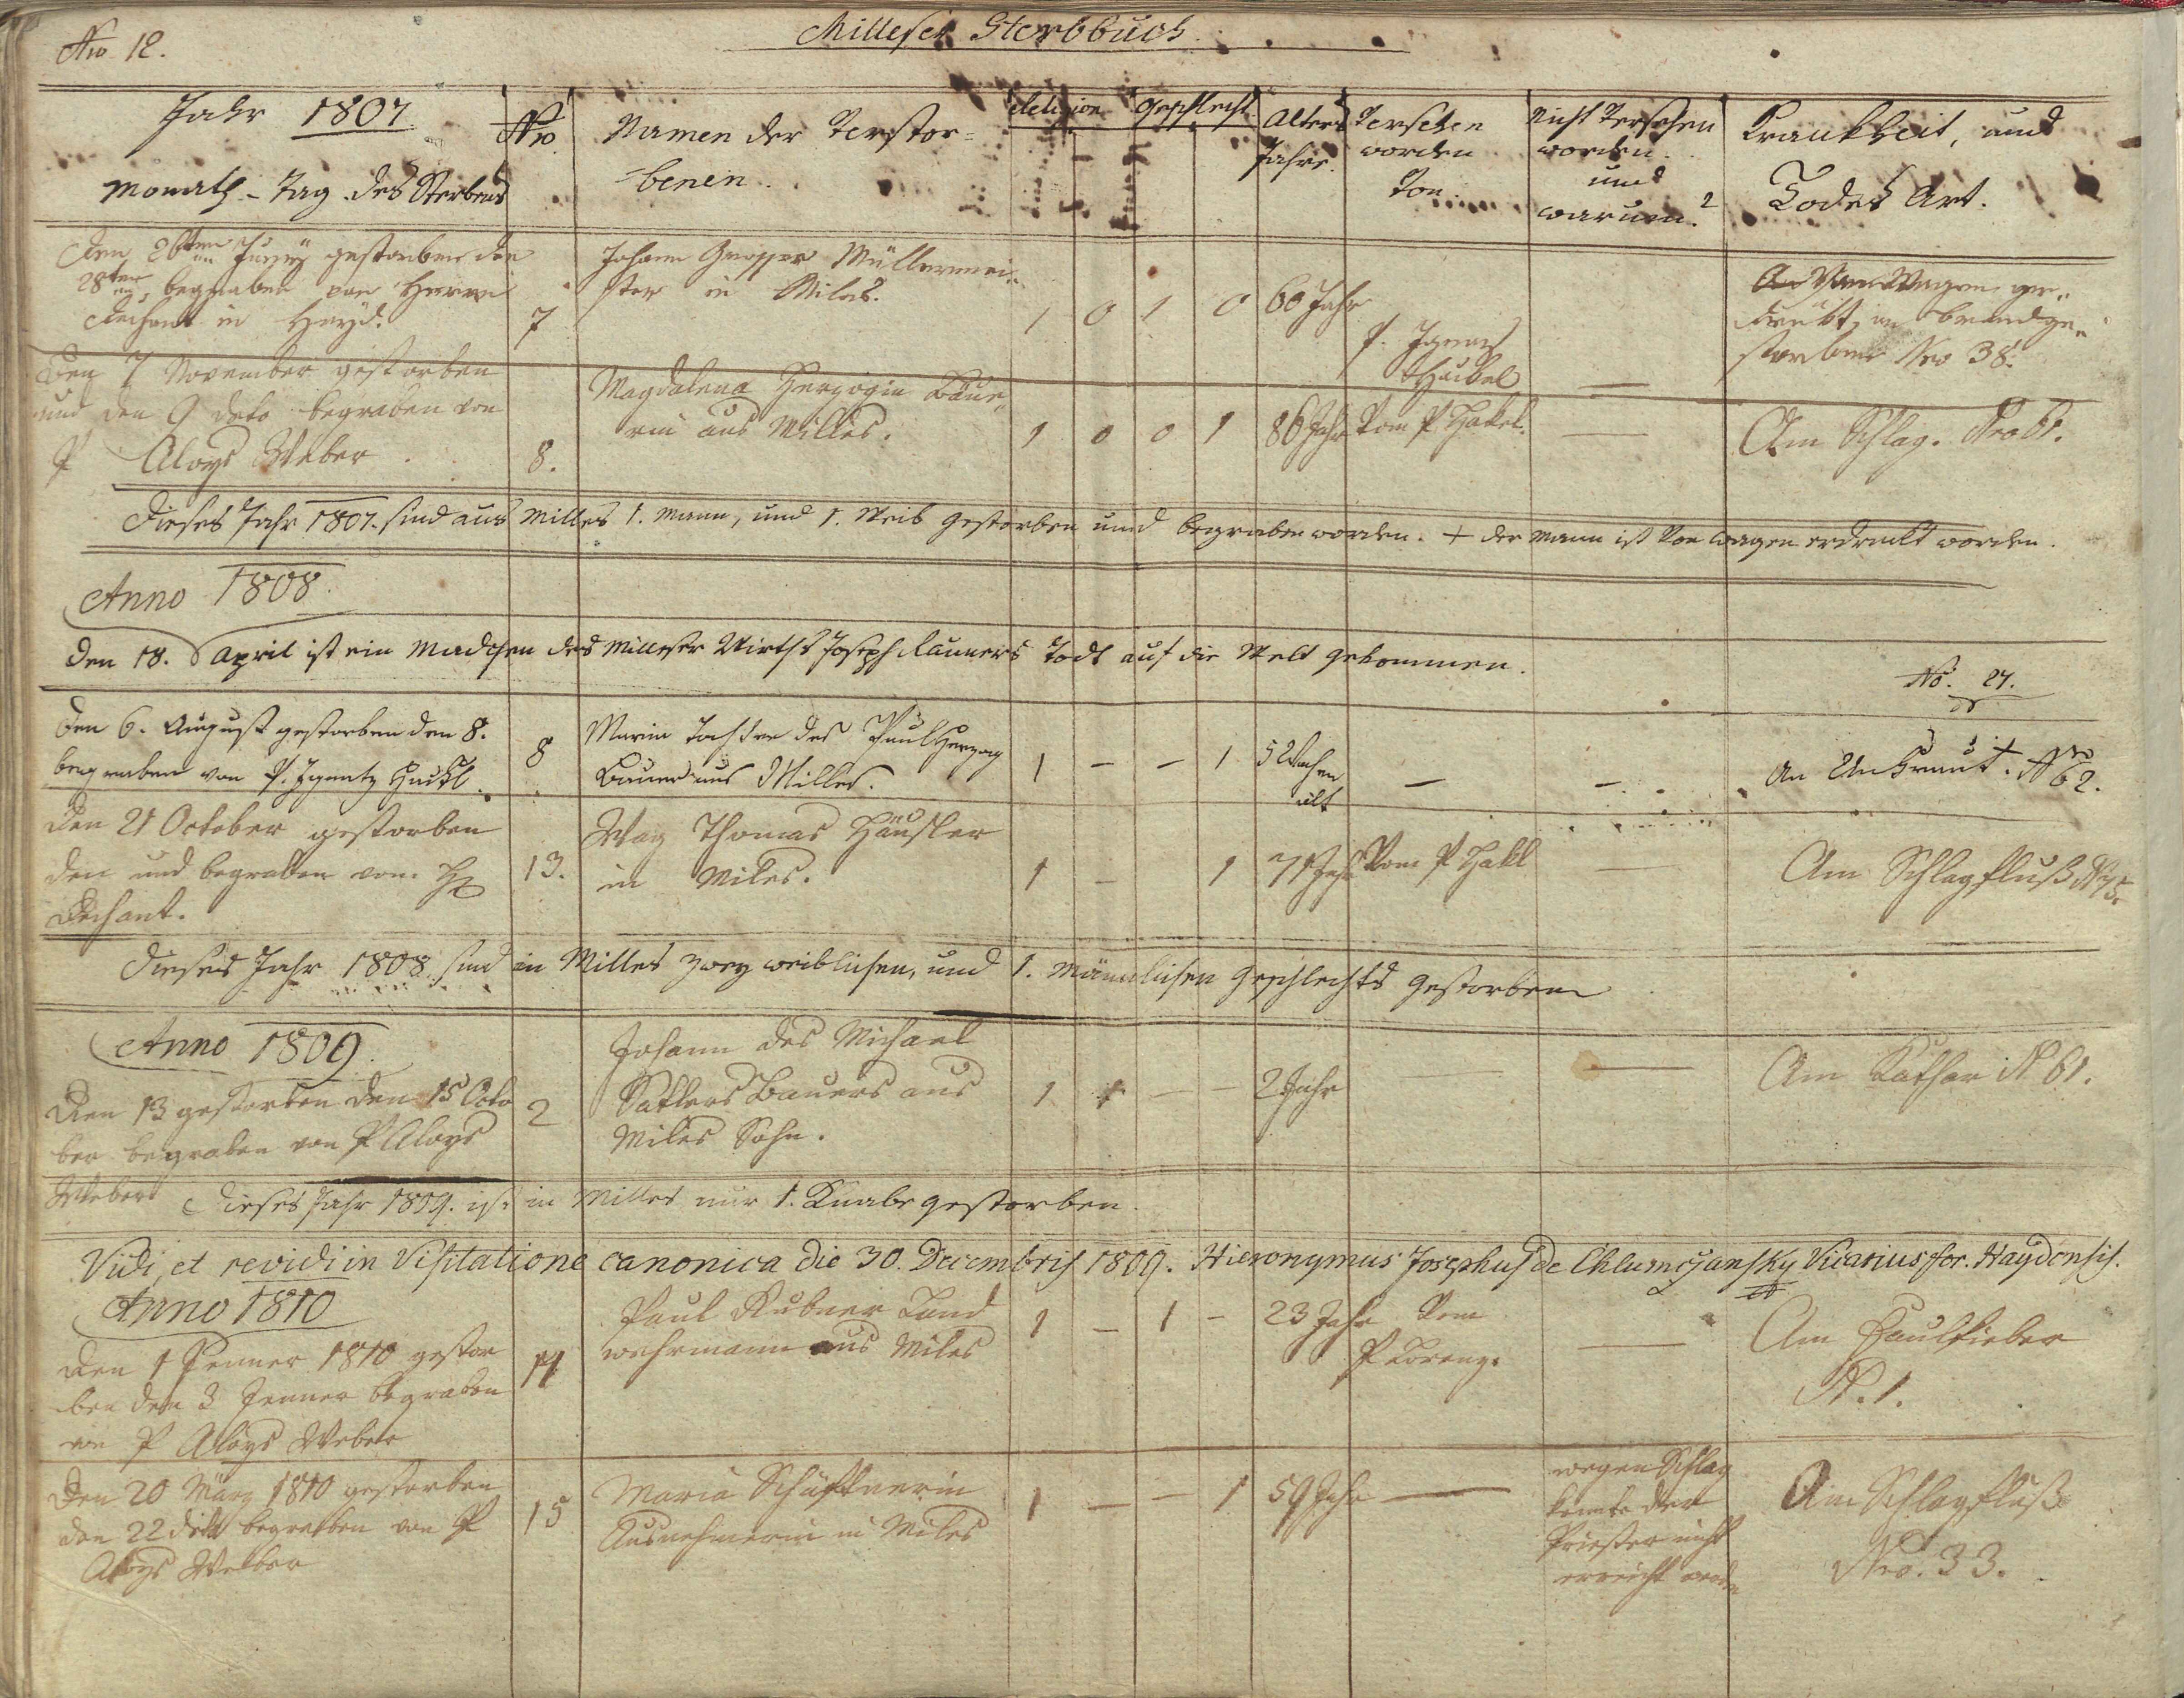 Nro 12.
Milleser Sterbbuch.
Jahr 1807.
Monath - Tag des Sterbens
Nro
Namen der Verstor-
benen.
Religion
Geschlecht
Alters
Jahre.
Versehen
worden
von
Nicht Versehen
worden
und
warum?
Krankheit, und
Todes Art.
Den 26ten Juny gestorben den
28ten begraben von Herrn
Dechant in Hayd.
7
Johann Grosser Müllermei-
ster in Miles.
1 0 1 0
60 Jahr
P. Ignaz
Huibel
—
Vom Wagen ge-
druckt, am brand ge-
storben Nro 38.
Den 7 November gestorben
und den 9 deto begraben von
P Aloys Weber.
8.
Magdalena Herzogin Bäue-
rin aus Milles.
1 0 0 1
86 Jahr
Vom P Hakel.
—
Am Schlag. Nro 61.
Dieses Jahr 1807. sind aus Milles 1. Mann, und 1. Weib gestorben und begraben worden. + der Mann ist von Wagen erdruckt worden.
Anno 1808.
Den 18. April ist ein Madchen des Milleser Wirths Joseph Rauners Todt auf die Welt gekommen.
No. 27.
Den 6. August gestorben den 8.
begraben von P. Ignatz Huibl.
8
Maria Tochter des Paul Herzog
Bauers aus Milles.
1 — — 1
5 Wochen
alt
—
—
An Unkraut. Nro 62.
Den 21 October gestorben
den und begraben vom H
Dechant.
13.
Way Thomas Häusler
in Miles.
1 — 1
71 Jahr
Vom P Hakl
—
Am Schlagfluß N 75.
Dieses Jahr 1808. sind in Milles zwey weiblichen, und 1. Männlichen Geschlechts gestorben
Anno 1809.
Den 13 gestorben den 15 Octo
ber begraben von P Aloys
Weber
2
Johann des Michael
Sattlers Bauers aus
Miles Sohn.
1 1 — —
2 Jahr
—
—
Am Kathar N 61.
Dieses Jahr 1809. ist in Milles nur 1. Knabe gestorben.
Vidi, et revidi in Visitatione canonica die 30. Decembris 1809. Hieronymus Josephus de Chlumczansky Vicarius for. Haydensis.
Anno 1810
Den 1 Jenner 1810 gestor
ben den 3 Jenner begraben
von P Aloys Weber
14
Paul Kubner Land
wehrmann aus Miles
1 — 1 —
23 Jahr
Vom
P Lorenz.
—
Am Faulfieber
N. 1.
Den 20 März 1810 gestorben
den 22 deto begraben von P
Aloys Weber
15
Maria Schüfftnerin
Ausnehmerin in Miles
1 — — 1
59 Jahr
—
wegen Schlag
konnte der
Priester nicht
erreicht werden
Am Schlagfluß
Nro. 33.